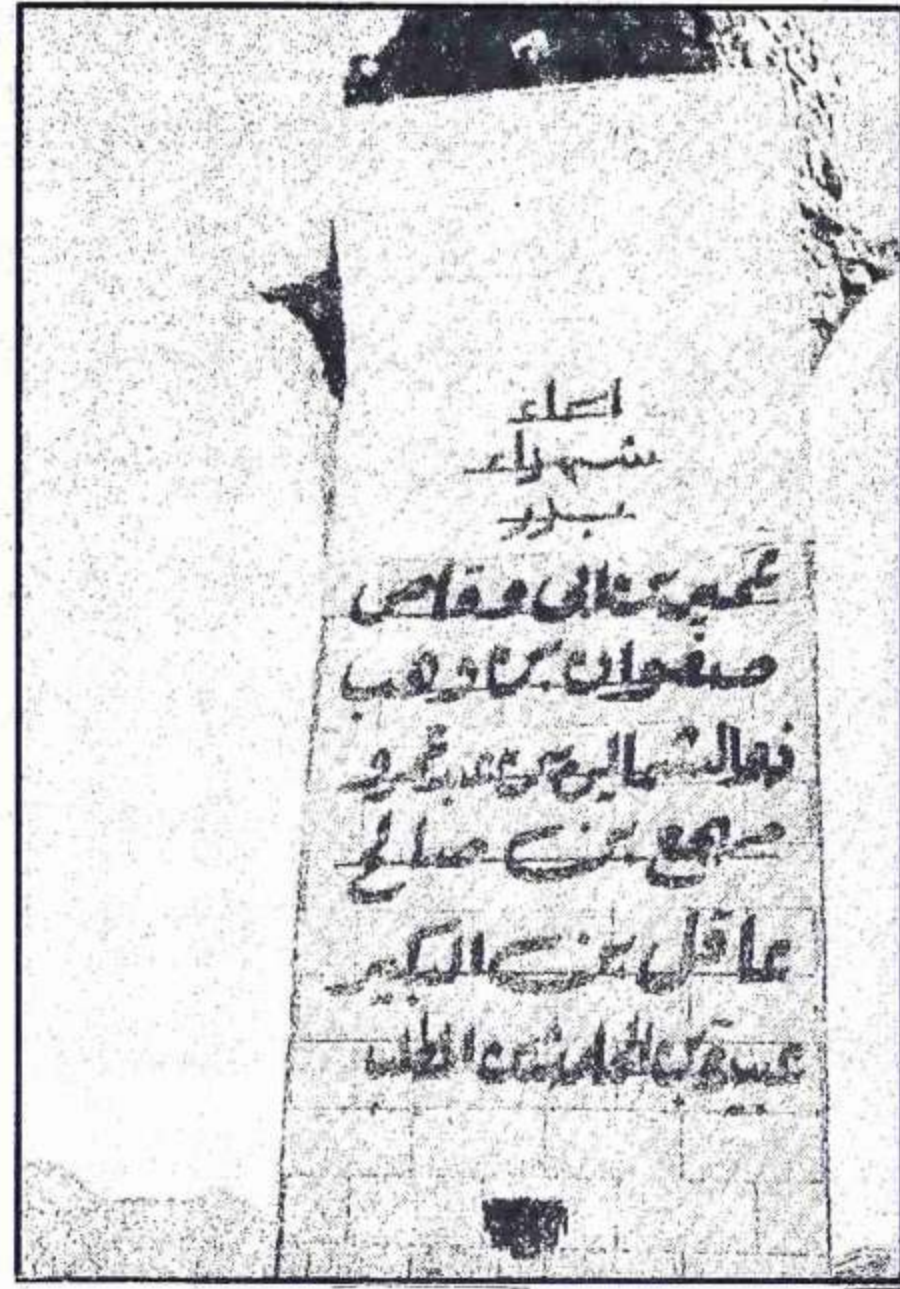 اسماء
شهداء
بدر
عمير بن ابي وقاص
صفوان بن وهب
ذوالشمالين بن عبد عمرو
مهجع بن صالح
عاقل بن البكير
عبيدة بن الحارث بن المطلب